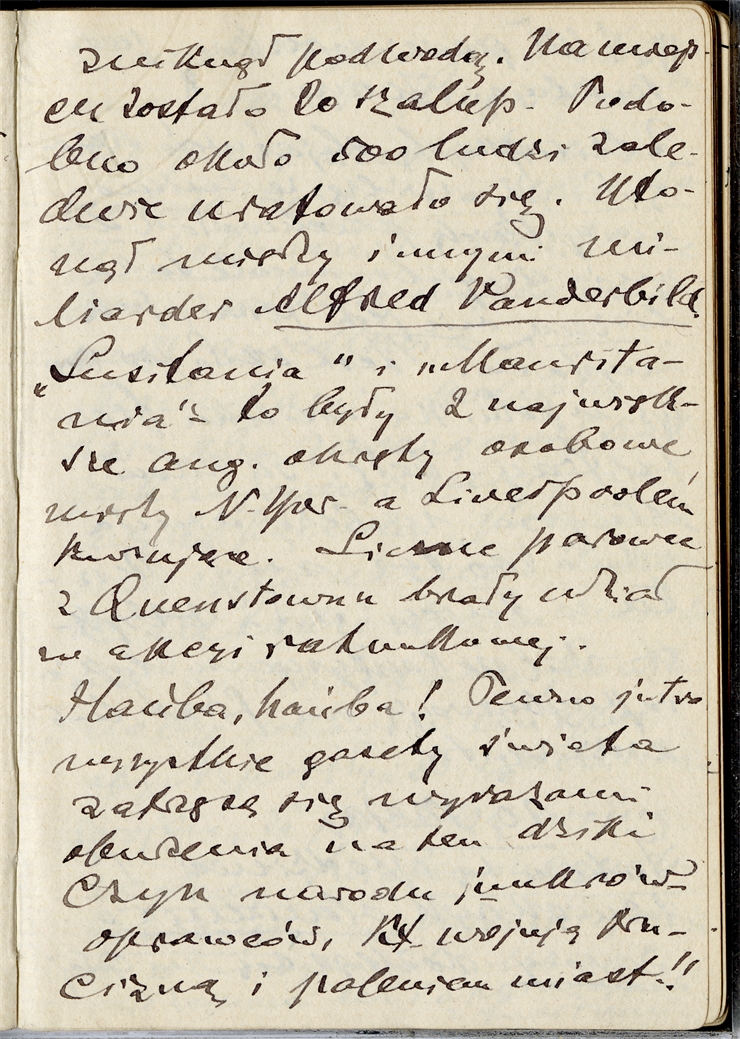 zniknął pod wodą. Na miejs-
cu zostało 20 szalup. Podo-
bno około 500 ludzi zale-
dwie uratowało się. Uto-
nął między innymi mi-
liarder Alfred Vanderbild.
„Lusitania" i „Maurita-
nia" - to były 2 najwięk-
sze ang. okręty osobowe
między N.-Yor. a Liverpoolem
kursujące. Liczne parowce
z Quenstownu brały udział
w akcyi ratunkowej.
Hańba, hańba! Pewno jutro
wszystkie gazety świata
zatrzęsą się wyrazami
oburzenia na ten dziki
czyn narodu junkrów-
oprawców, wojują tru-
cizną i paleniem miast!!